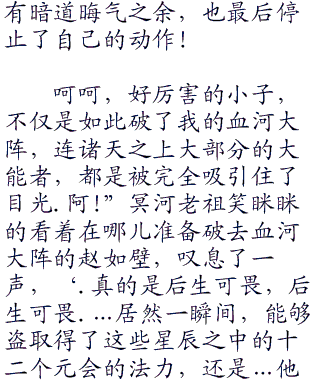 有暗道晦气之余，也最后停
止了自己的动作！
呵呵，好厉害的小子，
不仅是如此破了我的血河大
阵，连诸天之上大部分的大
能者，都是被完全吸引住了
目光.阿!”冥河老祖笑眯眯
的看着在哪儿准备破去血河
大阵的赵如壁，叹息了一
声，‘.真的是后生可畏，后
生可畏....居然一瞬间，能够
盗取得了这些星辰之中的十
二个元会的法力，还是...他